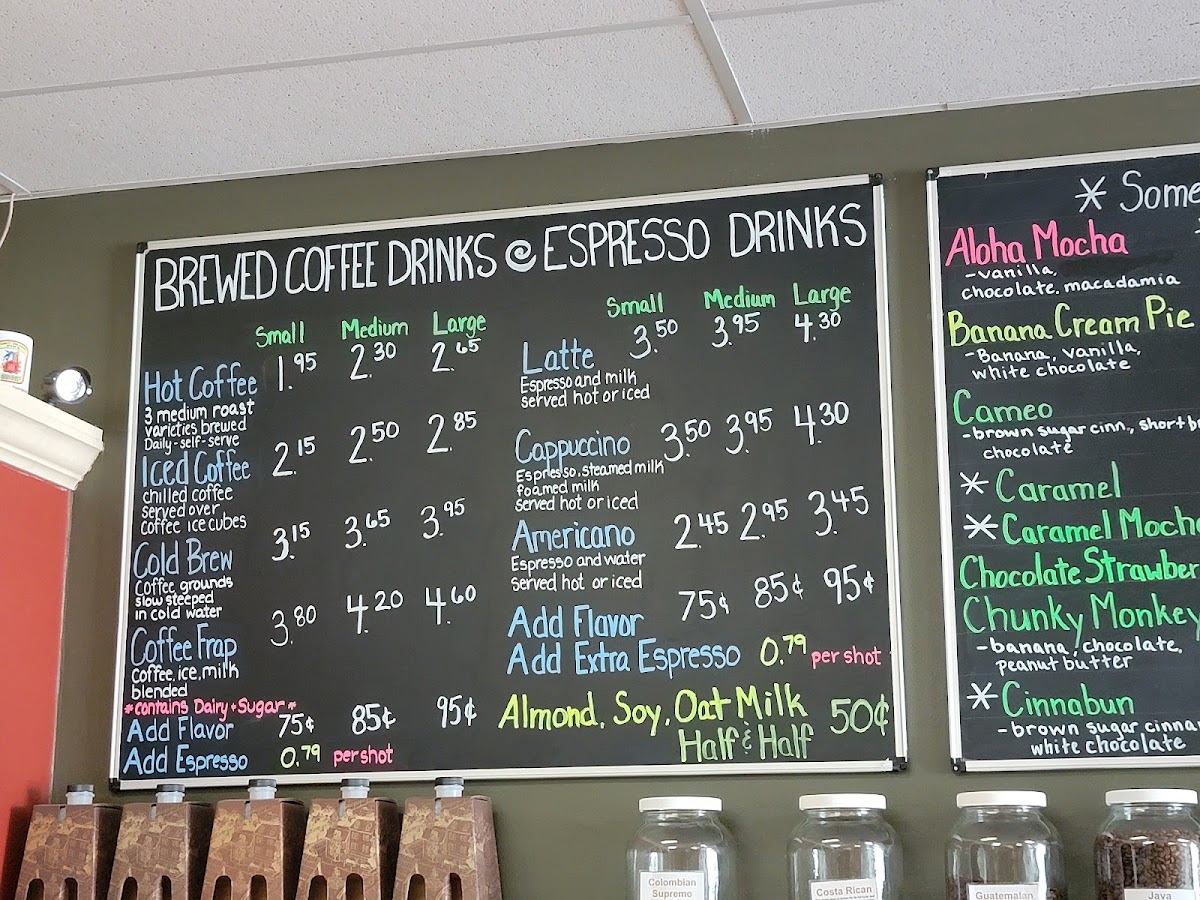 BREWED COFFEE DRINKS ESPRESSO DRINKS
Small Medium Large
Hot Coffee 1.95 2.30 2.65
3 medium roast
varieties brewed
Daily-self-serve
Iced Coffee 2.15 2.50 2.85
chilled coffee
served over
coffee ice cubes
Cold Brew 3.15 3.65 3.95
Coffee grounds
slow steeped
in cold water
Coffee Frap 3.80 4.20 4.60
Coffee, ice, milk
blended
*contains Dairy + Sugar*
Add Flavor 75¢ 85¢ 95¢
Add Espresso 0.79 per shot
Small Medium Large
Latte 3.50 3.95 4.30
Espresso and milk
served hot or iced
Cappuccino 3.50 3.95 4.30
Espresso, steamed milk
foamed milk
served hot or iced
Americano 2.45 2.95 3.45
Espresso and water
served hot or iced
Add Flavor 75¢ 85¢ 95¢
Add Extra Espresso 0.79 per shot
Almond, Soy, Oat Milk 50¢
Half & Half
* Some
Aloha Mocha
-vanilla,
chocolate, macadamia
Banana Cream Pie
-Banana, vanilla,
white chocolate
Cameo
-brown sugar cinn., short
chocolate
* Caramel
* Caramel Moch
Chocolate Strawber
Chunky Monkey
-banana, chocolate,
peanut butter
* Cinnabun
-brown sugar cinna
white chocolate
Colombian
Supremo
Costa Rican
Guatemalan
Java